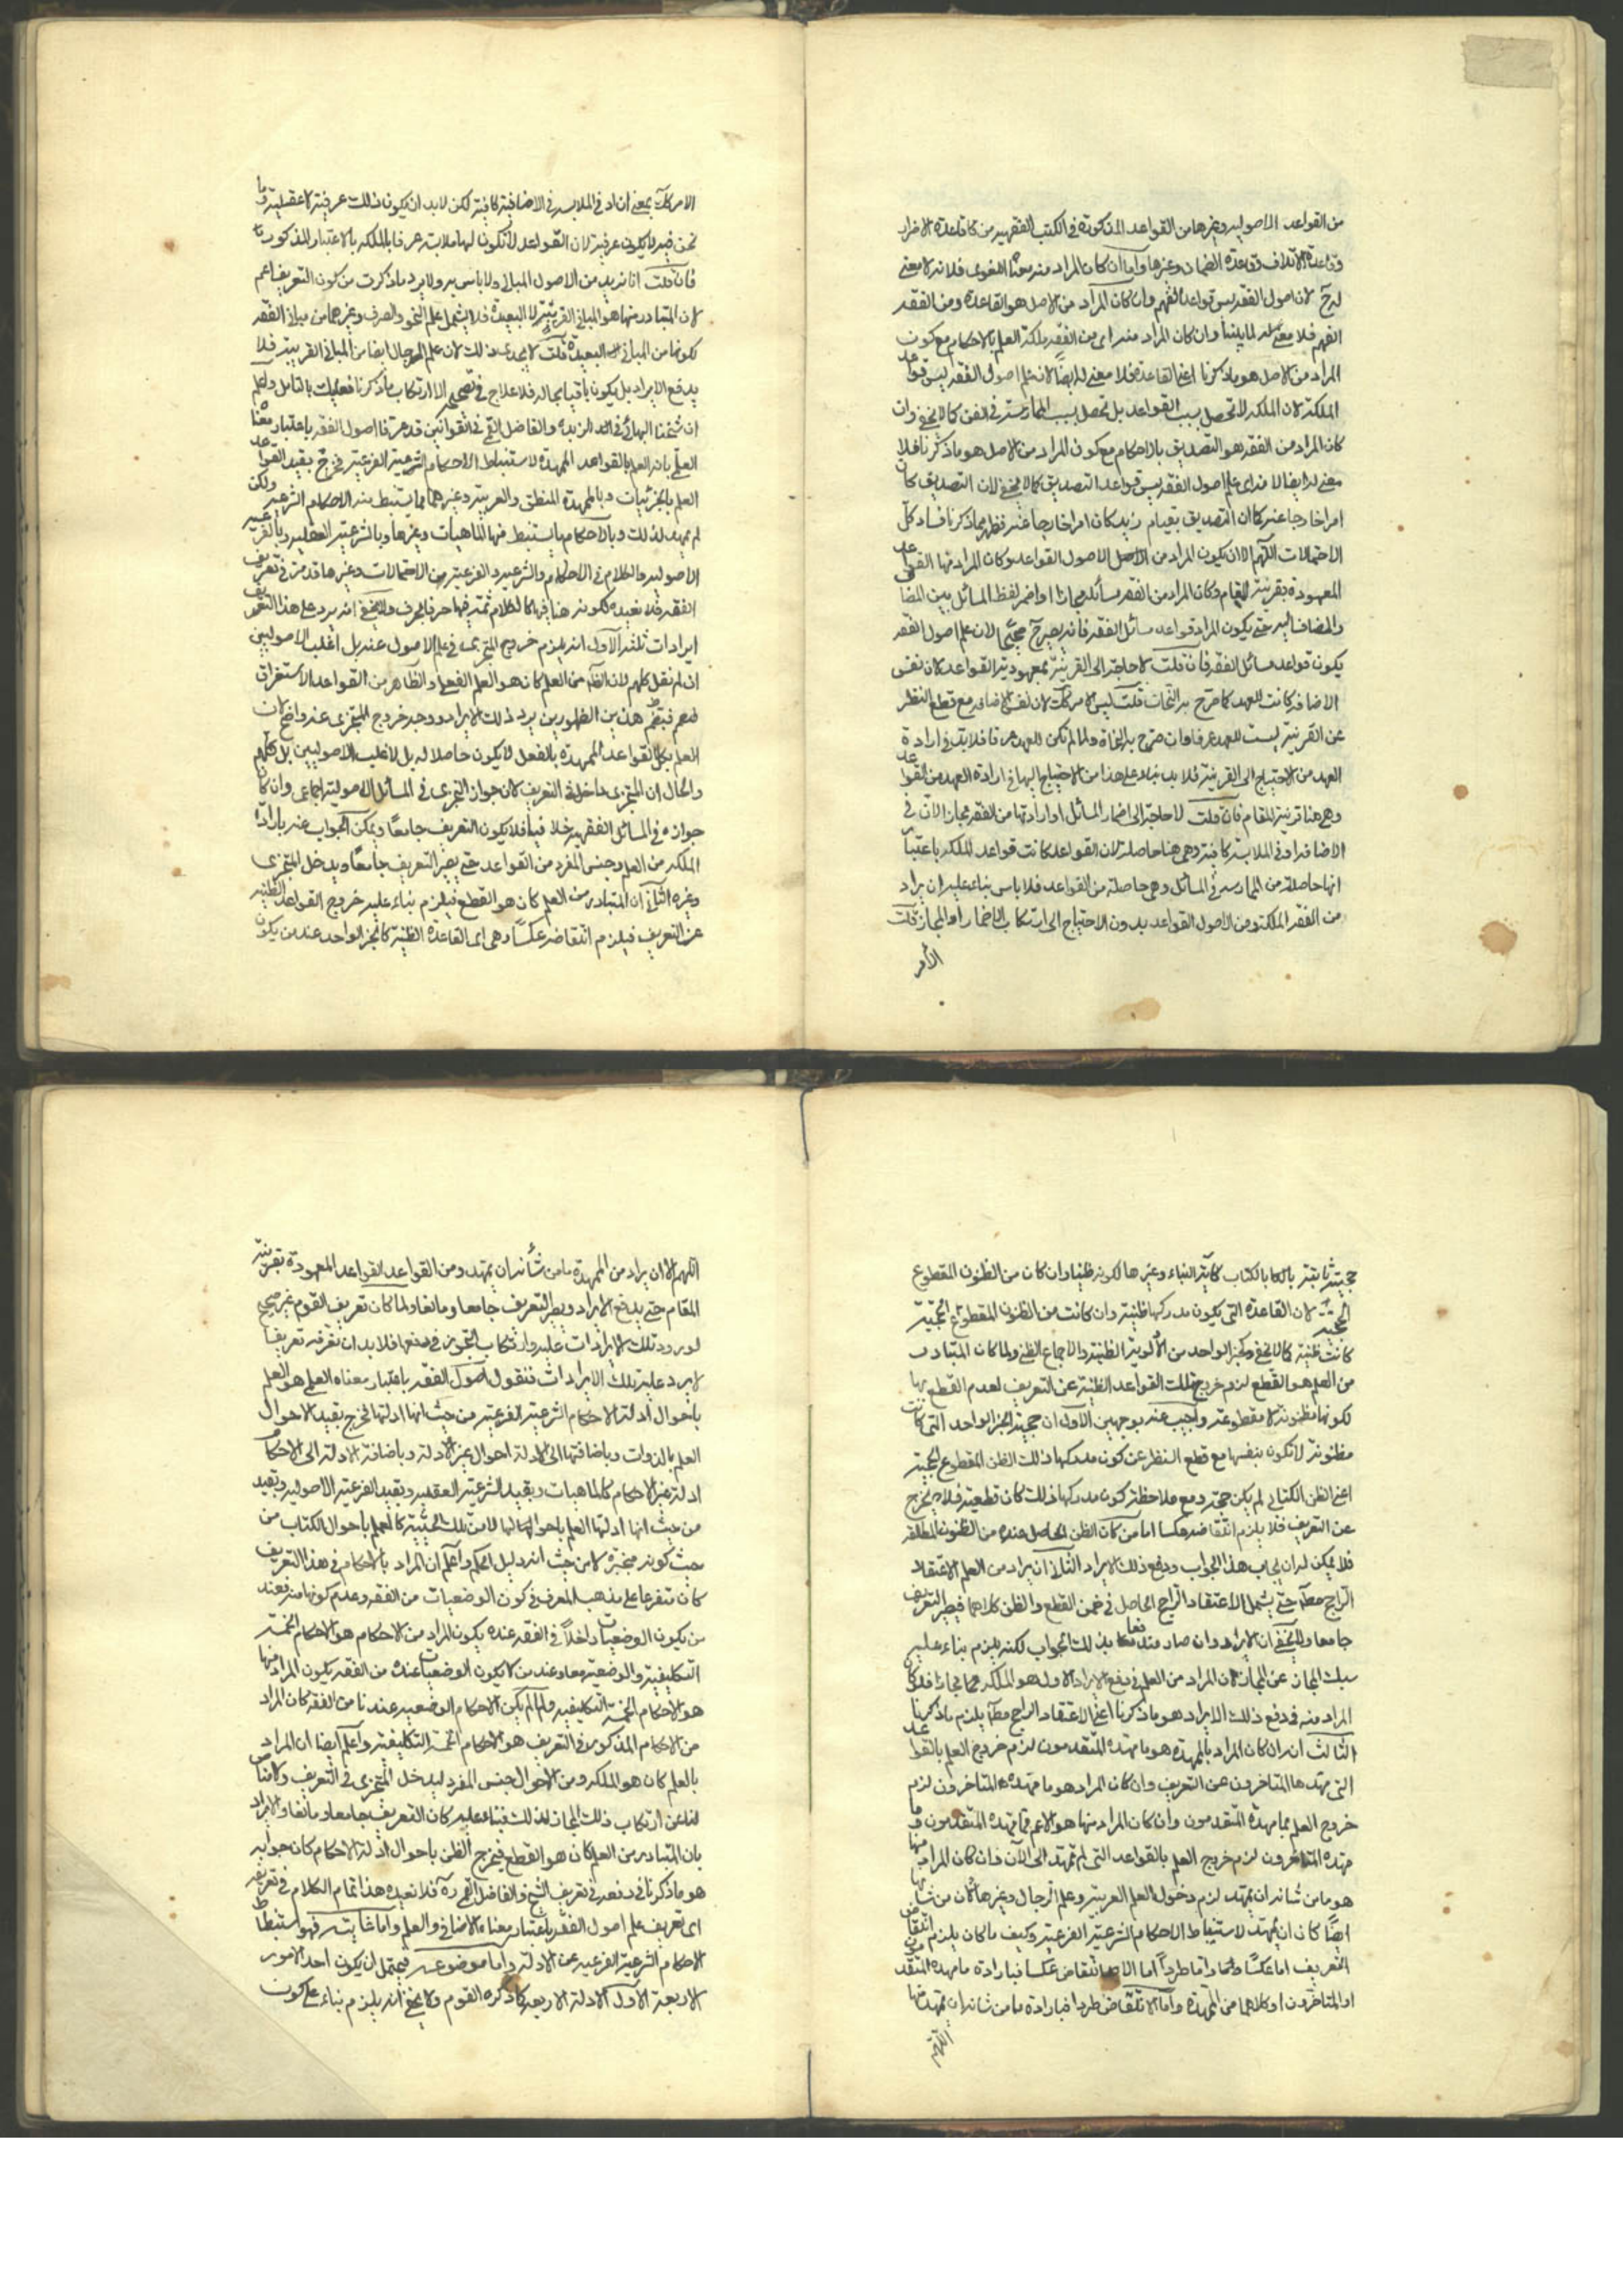 من القواعد الاصوليه وغيرها من القواعد المذكورة فى الكتب الفقهيه من كقاعدة الاضرار
وقاعدة الاتلاف وقاعدة الضمان وغيرها واما ان كان المراد منه معناه اللغوى فلانه لا معنى
له ح لان اصول الفقه ليس قواعد الفهم وان كان المراد من الاصل هو القاعدة ومن الفقه
الفهم فلا معنى له لما بينا وان كان المراد منه اى من الفقه ملكة العلم بالاحكام مع كون
المراد من الاصل هو ما ذكرنا اعنى القاعدة فلا معنى له ايضا لان علم اصول الفقه ليس قواعد
الملكة لان الملكه لا تحصل بسبب القواعد بل تحصل بسبب الممارسة فى الفن كما لا يخفى وان
كان المراد من الفقه هو التصديق بالاحكام مع كون المراد من الاصل هو ما ذكرنا فلا
معنى له ايضا لانه اى علم اصول الفقه ليس قواعد التصديق كما لا يخفى لان التصديق كان
امرا خارجا عنه كما ان التصديق بقيام زيد كان امرا خارجا عنه فظهر مما ذكرنا فساد كل
الاحتمالات اللهم الا ان يكون المراد من الاصول القواعد وكان المراد منها القواعد
المعهودة بقرينة المقام وكان المراد من الفقه مسائله مجازا او اضمر لفظ المسائل بين المضاف
والمضاف اليه حتى يكون المراد قواعد مسائل الفقه فانه يصير ح صحيحا لان علم اصول الفقه
يكون قواعد مسائل الفقه فان قلت لا حاجة الى القرينة لمعهودية القواعد لان نفس
الاضافه كانت للعهد كما صرح به النحات قلت ليس الامر كك لان نفس الاضافه مع قطع النظر
عن القرينة ليست للعهد عرفا وان صرح به النحاة ولما لم تكن للعهد عرفا فلا بد فى ارادة
العهد من الاحتياج الى القرينة فلا بد بناء على هذا من الاحتياج اليها فى ارادة العهد من القواعد
وهى هنا قرينة المقام فان قلت لا حاجة الى اضمار المسائل او ارادتها من الفقه مجازا لان فى
الاضافه ادنى الملابسة كافية وهى هنا حاصلة لان القواعد كانت قواعد للملكه باعتبار
انها حاصلة من الممارسه فى المسائل وهى حاصلة من القواعد فلا باس بناء عليه ان يراد
من الفقه الملكة ومن الاصول القواعد بدون الاحتياج الى ارتكاب الاضمار او المجاز قلت
الامر
الامر كك بمعنى ان ادنى الملابسه فى الاضافية كافية لكن لا بد ان يكون ذلك عرفية لا عقلية وما
نحن فيه لا يكون عرفية لان القواعد لا تكون لها ملابسة عرفا بالملكه بالاعتبار المذكور
فان قلت انا نريد من الاصول المبانى ولا باس به ولا يرد ما ذكرت من كون التعريف اعم
لان المتبادر منها هو المبانى القريبة لا البعيدة فلا يشمل علم النحو والصرف وغيرهما من مبانى الفقه
لكونها من المبانى البعيدة قلت لا يجدى ذلك لان علم الرجال ايضا من المبانى القريبة فلا
يدفع الايراد بل يكون باقيا بحاله فلا علاج فى تصحيحه الا ارتكاب ما ذكرنا فعليك بالتامل واعلم
ان شيخنا البهائى فى الزبده والفاضل القمى فى القوانين قد عرفا اصول الفقه باعتبار معناه
العلمى بانه العلم بالقواعد الممهدة لاستنباط الاحكام الشرعية الفرعية فخرج بقيد القواعد
العلم بالجزئيات وبالممهدة المنطق والعربية وغيرهما مما يستنبط منه الاحكام الشرعيه ولكن
لم يمهد لذلك وبالاحكام ما يستنبط منها الماهيات وغيرها وبالشرعية العقليه وبالفرعيه
الاصوليه والكلام فى الاحكام والشرعيه والفرعية من الاحتمالات وغيرها قد مر فى تعريف
الفقه فلا نعيده لكونه هنا كالكلام ثمة فيها حرفا بحرف ولا يخفى انه يرد على هذا التعريف
ايرادات ثلثه الاول انه يلزم خروج المتجزى فى علم الاصول عنه بل اغلب الاصوليين
ان لم نقل كلهم لان الظاهر من العلم كان هو العلم الفعلى والظاهر من القواعد الاستغراق
فبضم هذين الظهورين يرد ذلك الايراد ووجه خروج المتجزى عنه واضح لان
العلم بكل القواعد الممهدة بالفعل لا يكون حاصلا له بل لاغلب الاصوليين بل كلهم
والحال ان المتجزى داخل فى التعريف لان جواز التجزى فى المسائل الاصولية اجماعى وان كان
جوازه فى المسائل الفقهيه خلافيا فلا يكون التعريف جامعا ويمكن الجواب عنه بارادة
الملكه من العلم وجنس المفرد من القواعد حتى يصير التعريف جامعا ويدخل المتجزى
وغيره الثانى ان المتبادر من العلم كان هو القطع فيلزم بناء عليه خروج القواعد الظنيه
عن التعريف فيلزم انتقاضه عكسا وهى اى القاعدة الظنية كالخبر الواحد عند من يكون
حجيته ثابتة بالكتاب كآية النباء وغيرها لكونه ظنيا وان كان من الظنون المقطوع
الحجية لان القاعدة التى يكون مدركها ظنية وان كانت من الظنون المقطوع الحجية
كانت ظنية كما لا يخفى وكخبر الواحد من الالوية الظنية والاجماع الظنى ولما كان المتبادر
من العلم هو القطع لزم خروج تلك القواعد الظنية عن التعريف لعدم القطع بها
لكونها مظنونة لا مقطوعة واجيب عنه بوجهين الاول ان حجية الخبر الواحد التى كانت
مظنونة لا تكون بنفسها مع قطع النظر عن كون مدركها ذلك الظن المقطوع الحجية
اعنى الظن الكتابى لم يكن حجة ومع ملاحظة كون مدركها ذلك كان قطعية فلا يخرج
عن التعريف فلا يلزم انتقاضه عكسا اما من كان الظن الحاصل عنده من الظنون المطلقه
فلا يمكن له ان يجاب هذا الجواب ودفع ذلك الايراد الثانى ان يراد من العلم الاعتقاد
الراجح مطلقا حتى يشمل الاعتقاد الراجح الحاصل فى ضمن القطع والظن كلاهما فيصير التعريف
جامعا ولا يخفى ان الايراد وان صار مندفعا بذلك الجواب لكنه يلزم بناء عليه
سبك المجاز عن المجاز لان المراد من العلم فى دفع الايراد الاول هو الملكه مجازا فلو كان
المراد منه فى دفع ذلك الايراد هو ما ذكرنا اعنى الاعتقاد الراجح مطلقا يلزم ما ذكرنا
الثالث انه ان كان المراد بالممهدة هو ما مهده المتقدمون لزم خروج العلم بالقواعد
التى مهدها المتاخرون عن التعريف وان كان المراد هو ما مهده المتاخرون لزم
خروج العلم بما مهدة المتقدمون وان كان المراد منها هو الاعم مما مهده المتقدمون وما
مهده المتاخرون لزم خروج العلم بالقواعد التى لم تمهد الى الآن وان كان المراد منها
هو ما من شانه ان يمهد لزم دخول العلم العربية وعلم الرجال وغيرها لان من شانها
ايضا كان ان يمهد لاستنباط الاحكام الشرعية الفرعية وكيف ما كان يلزم انتقاض
التعريف اما عكسا واما طردا اما الانتقاض عكسا فبارادة ما مهده المتقدمون
او المتاخرون او كلاهما من الممهدة واما الانتقاض طردا فبارادة ما من شانه ان يمهد منها
اللهم
اللهم الا ان يراد من الممهدة ما من شأنه ان يمهد ومن القواعد القواعد المعهودة بقرينة
المقام حتى يدفع الايراد ويصير التعريف جامعا ومانعا ولما كان تعريف القوم غير صحيح
لورود تلك الايرادات عليه وارتكاب التجوز فى دفعها فلا بد ان نعرفه تعريفا
لا يرد عليه تلك الايرادات فنقول اصول الفقه باعتبار معناه العلمى هو العلم
باحوال ادلة الاحكام الشرعية الفرعية من حيث انها ادلتها فخرج بقيد الاحوال
العلم بالذوات وباضافتها الى الادلة احوال غير الادلة وباضافة الادلة الى الاحكام
ادلة غير الاحكام كالماهيات وبقيد الشرعية العقليه وبقيد الفرعية الاصوليه وبقيد
من حيث انها ادلتها العلم باحوالها لا من تلك الحيثية كالعلم باحوال الكتاب من
حيث كونه معجزة لا من حيث انه دليل الحكم واعلم ان المراد بالاحكام فى هذا التعريف
كان متفرعا على مذهب المعرف فى كون الوضعيات من الفقه وعدم كونها منه فعند
من يكون الوضعيات داخلا فى الفقه عنده يكون المراد من الاحكام هو الاحكام الخمسة
التكليفية والوضعية معا وعند من لا يكون الوضعيات عنده من الفقه يكون المراد منها
هو الاحكام الخمسة التكليفيه ولما لم يكن الاحكام الوضعيه عندنا من الفقه كان المراد
من الاحكام المذكورة فى التعريف هو الاحكام الخمسة التكليفية واعلم ايضا ان المراد
بالعلم كان هو الملكه ومن الاحوال جنس المفرد ليدخل المتجزى فى التعريف ولا مناص
لنا عن ارتكاب ذلك المجاز لذلك فبناء عليه كان التعريف جامعا ومانعا والايراد
بان المتبادر من العلم كان هو القطع فيخرج الظن باحوال ادلة الاحكام كان جوابه
هو ما ذكرنا فى دفعه فى تعريف الشيخ والفاضل القمى ره فلا نعيده هذا تمام الكلام فى تعريفه
اى تعريف علم اصول الفقه باعتبار معناه الاضافى والعلمى واما غايته فهو استنباط
الاحكام الشرعية الفرعيه عن الادلة واما موضوعه فيحتمل ان يكون احد الامور
الاربعة الاول الادلة الاربعه كما ذكره القوم ولا يخفى انه يلزم بناء على كون